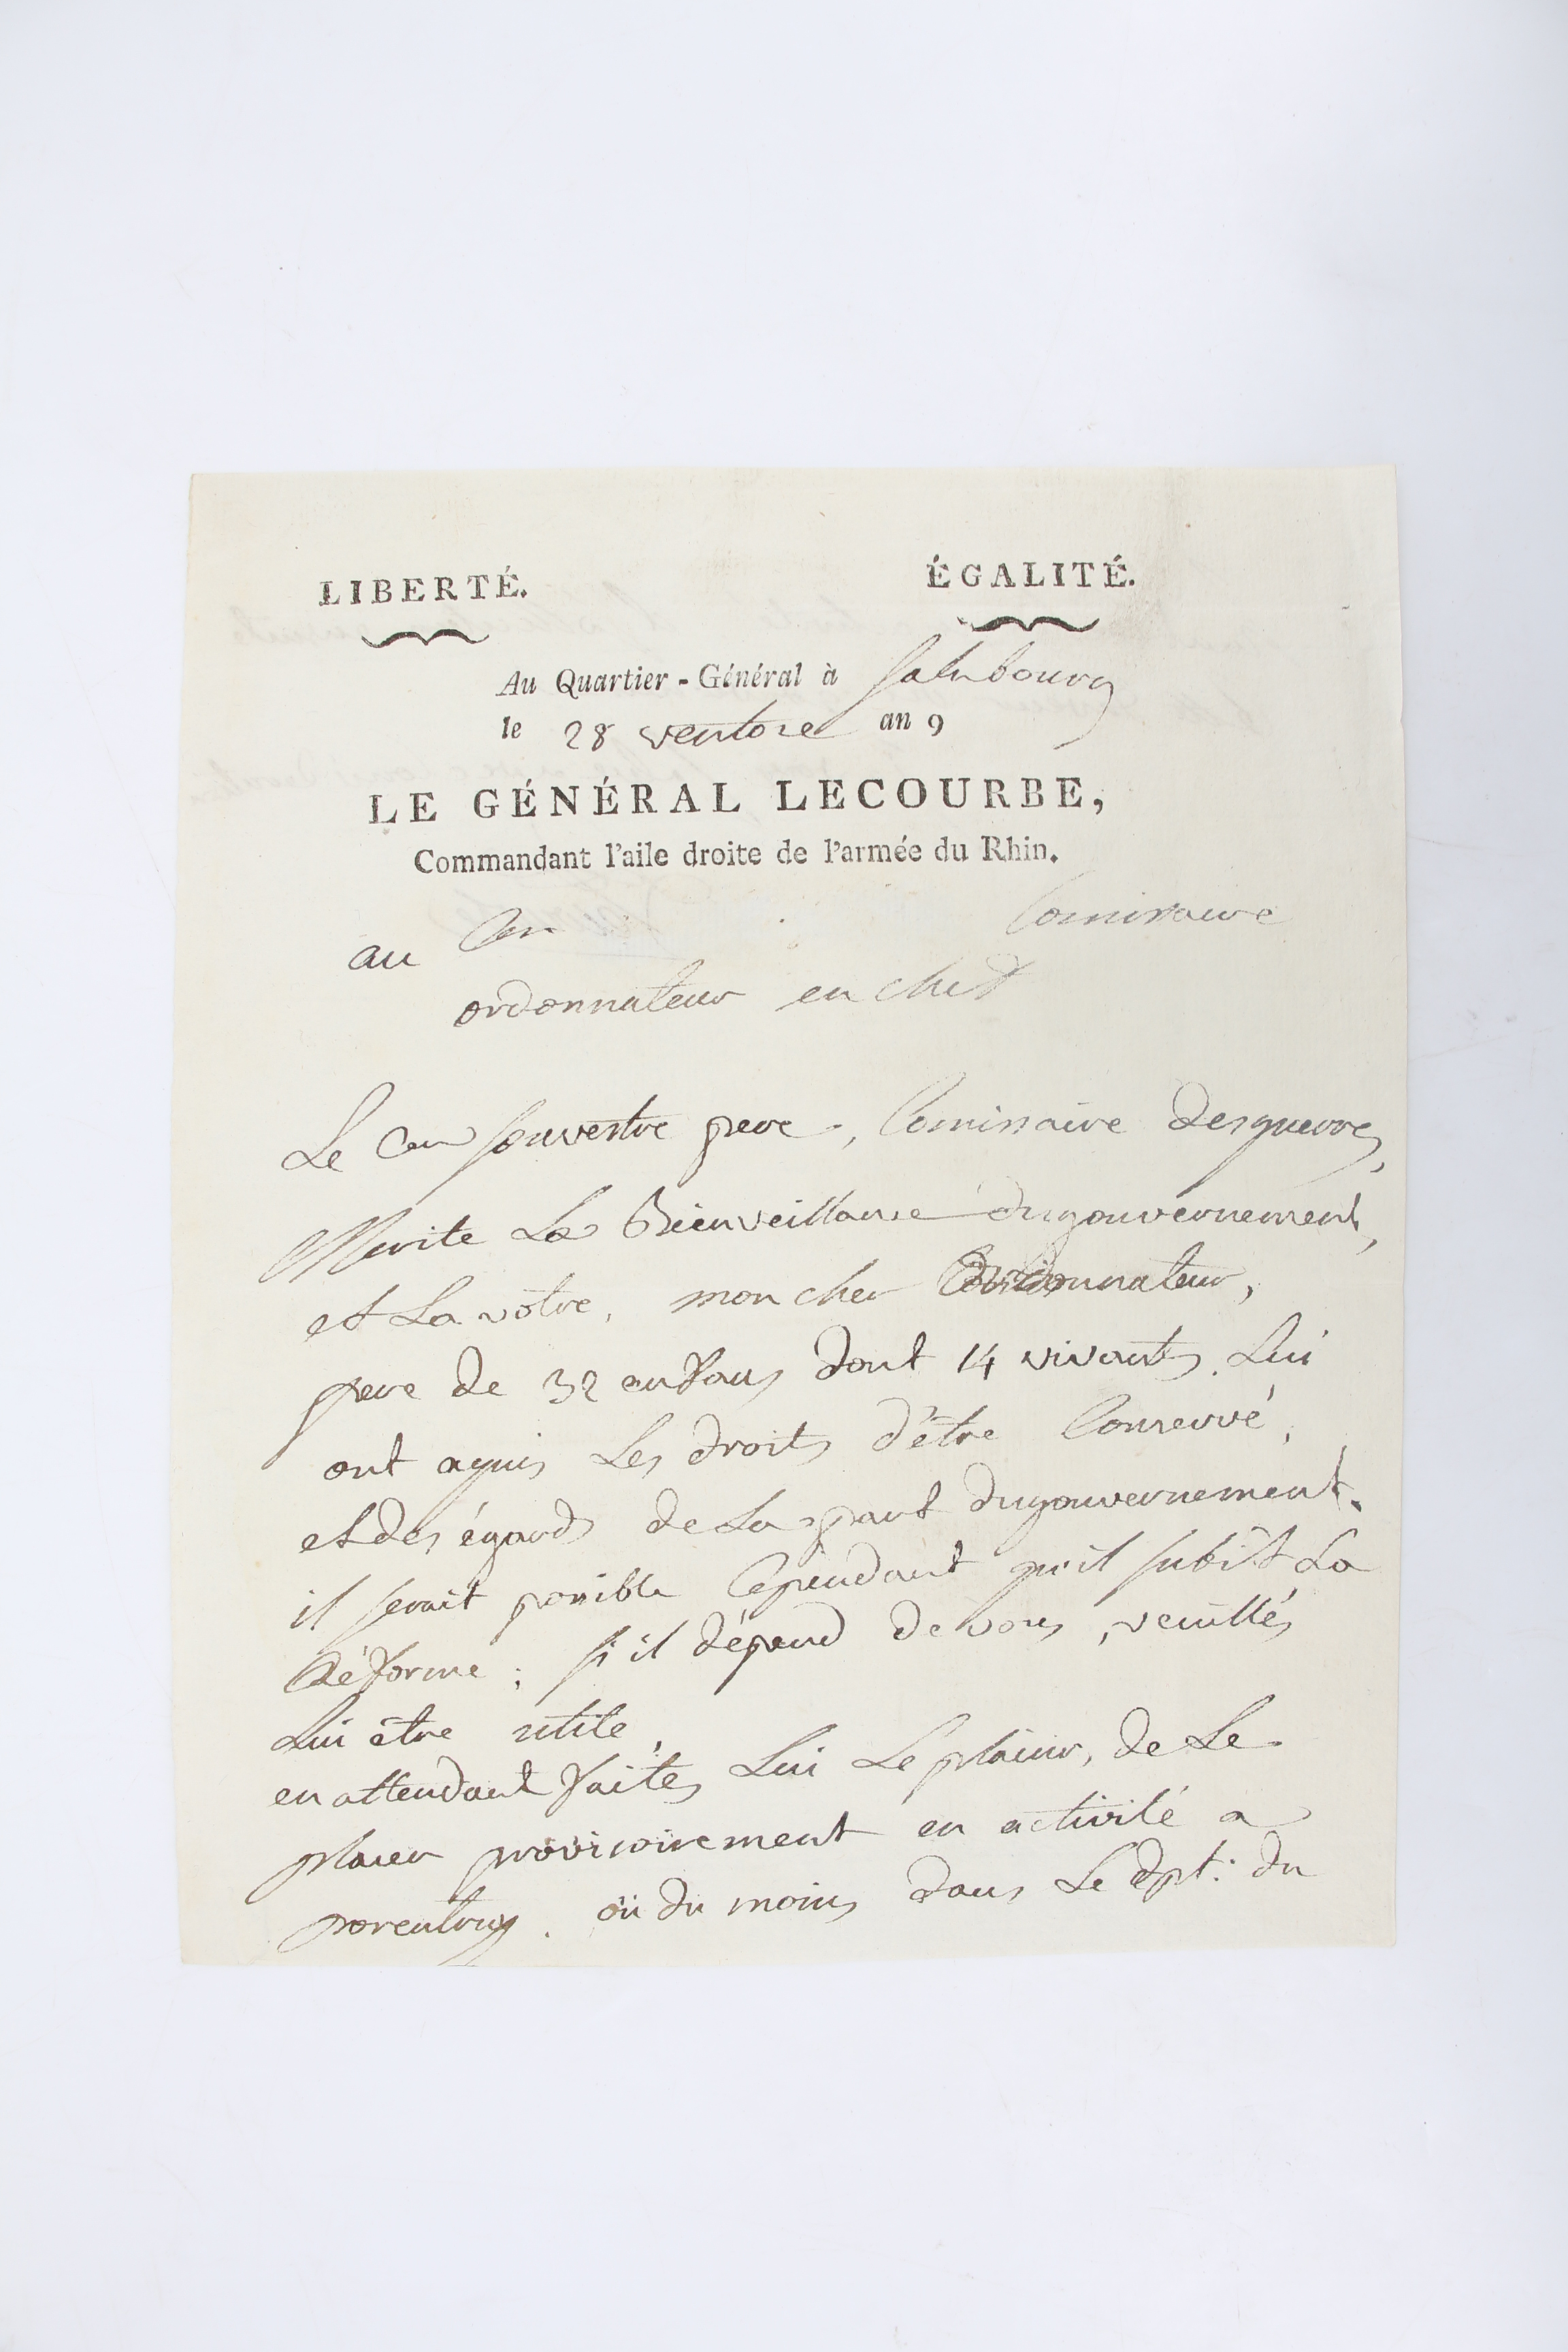 LIBERTÉ. ÉGALITÉ.
Au Quartier-Général à Salzbourg
le 28 ventose an 9
LE GÉNÉRAL LECOURBE,
Commandant l'aile droite de l'armée du Rhin.
au Cen Comissaire
ordonnateur en chef
Le Cen Souvestre pere, Comissaire des guerres,
Merite La Bienveillance du gouvernement,
et La votre, mon cher Ordonnateur,
pere de 32 enfans dont 14 vivants. Lui
ont aquis Les droits d'être Conservé,
et des égards de La part du gouvernement.
il serait possible Cependant qu'il subit La
Réforme; s'il dépend de vous, veuillés
Lui être utile,
en attendant faites Lui Le plaisir, de Le
placer provisoirement en activité a
porentruy. ou du moins dans Le dpt. du